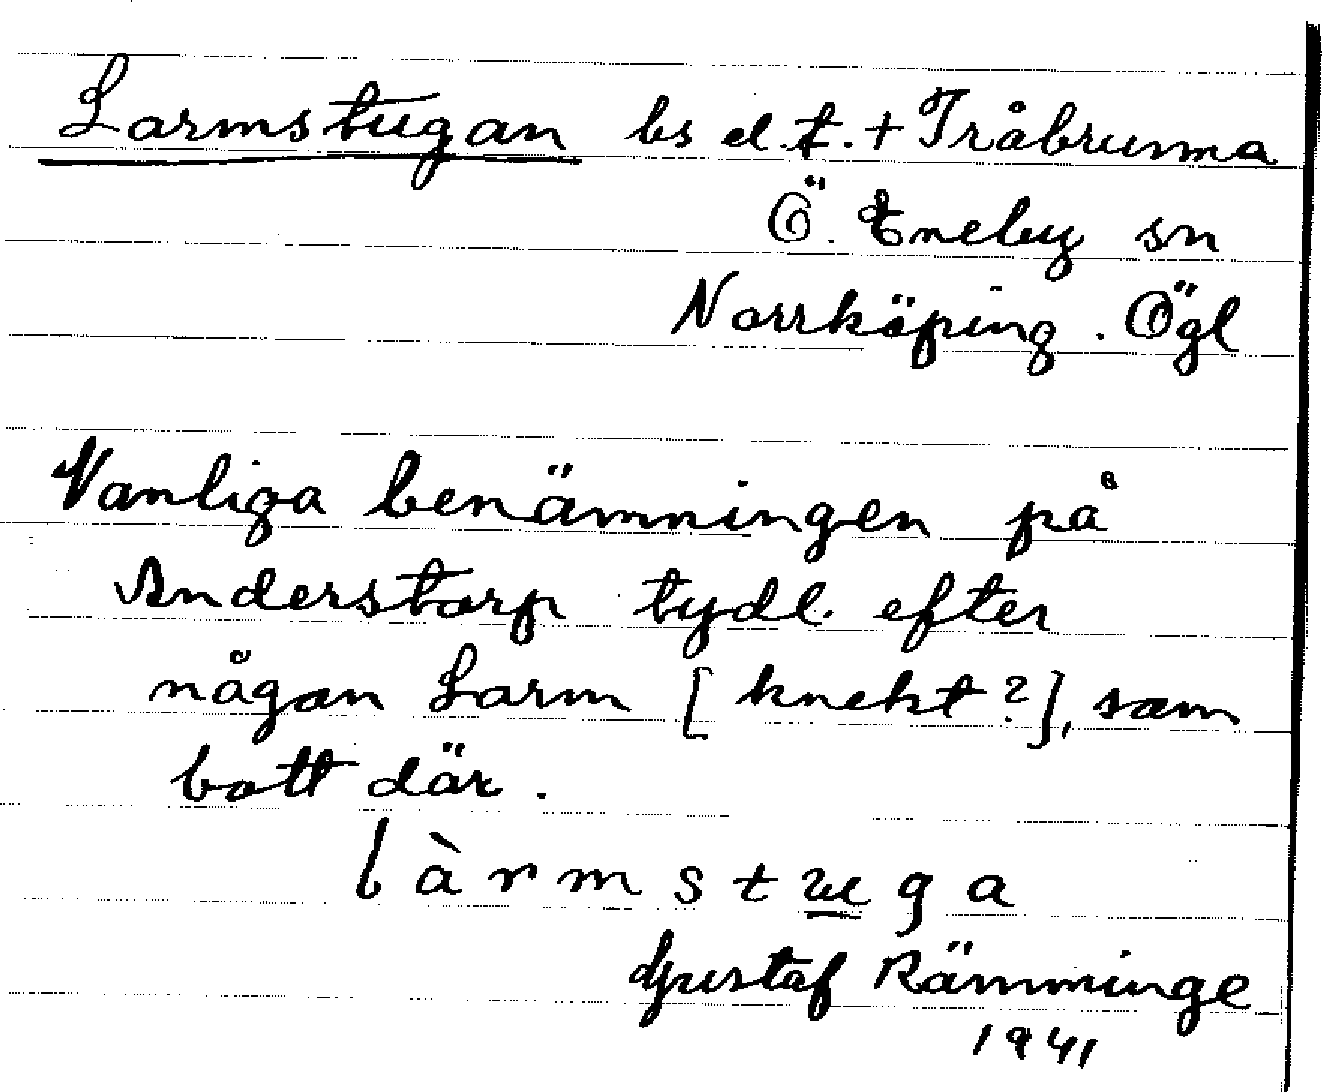 Larmstugan bs el. t. + Tråbrunna
Ö. Eneby sn
Norrköping. Ögl
Vanliga benämningen på
Anderstorp tydl. efter
någon Larm [knekt?], som
bott där.
làrmstuga
Gustaf Rämminge
1941